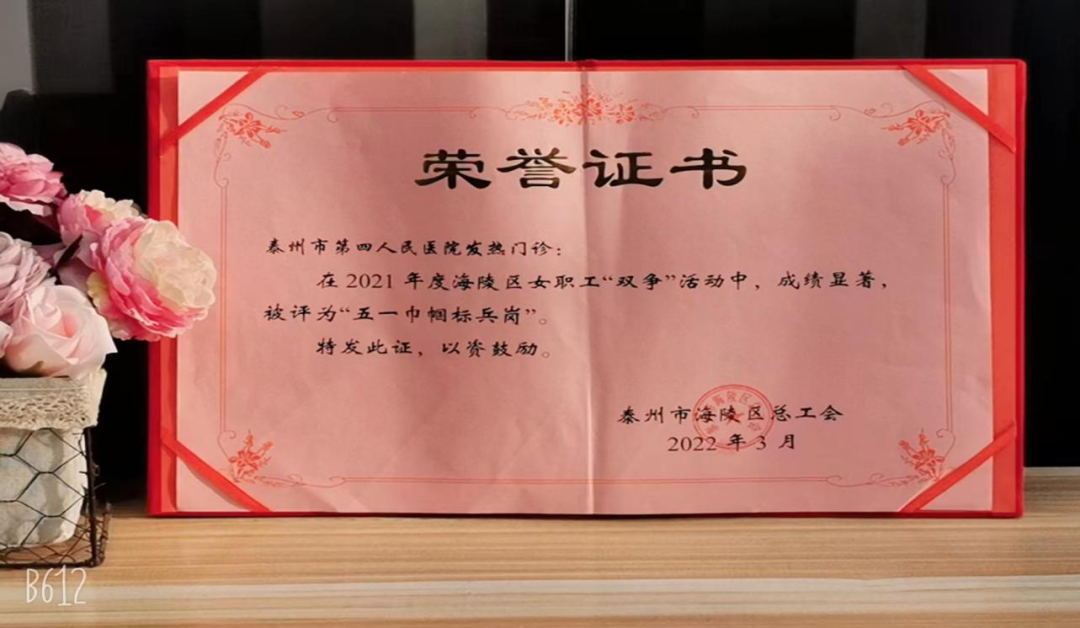 荣誉证书
泰州市第四人民医院发热门诊：
在2021年度海陵区女职工“双争”活动中，成绩显著，
被评为“五一巾帼标兵岗”。
特发此证，以资鼓励。
泰州市海陵区总工会
2022年3月
B612